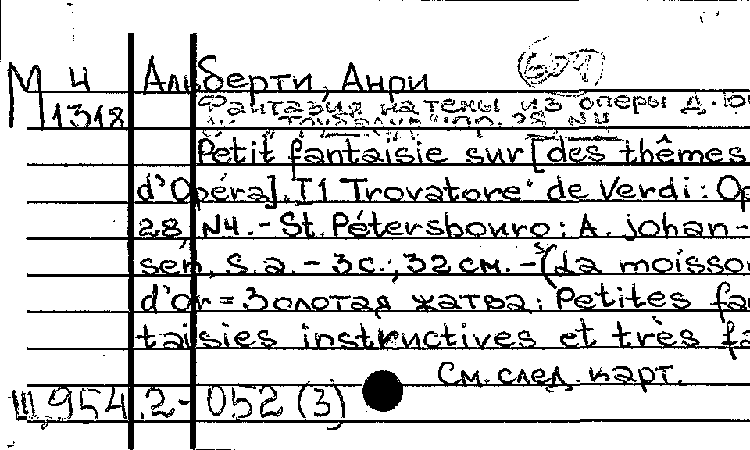 М 4 Альберти, Анри 609
1318 Фантазия на темы из оперы Д.
"Трубадур" ор. 28 N4
Petit fantaisie sur [des thêmes
d'Opéra]. I1 Trovatore" de Verdi: Op
28, N4. - St. Pétersbouro: A. Johan-
sen, s. a. - 3 с.; 32 см. - (La moisson
d'or = Золотая жатва: Petites fa
taisies instructives et très fa
См. след. карт.
Ш 954.2-052 (3)